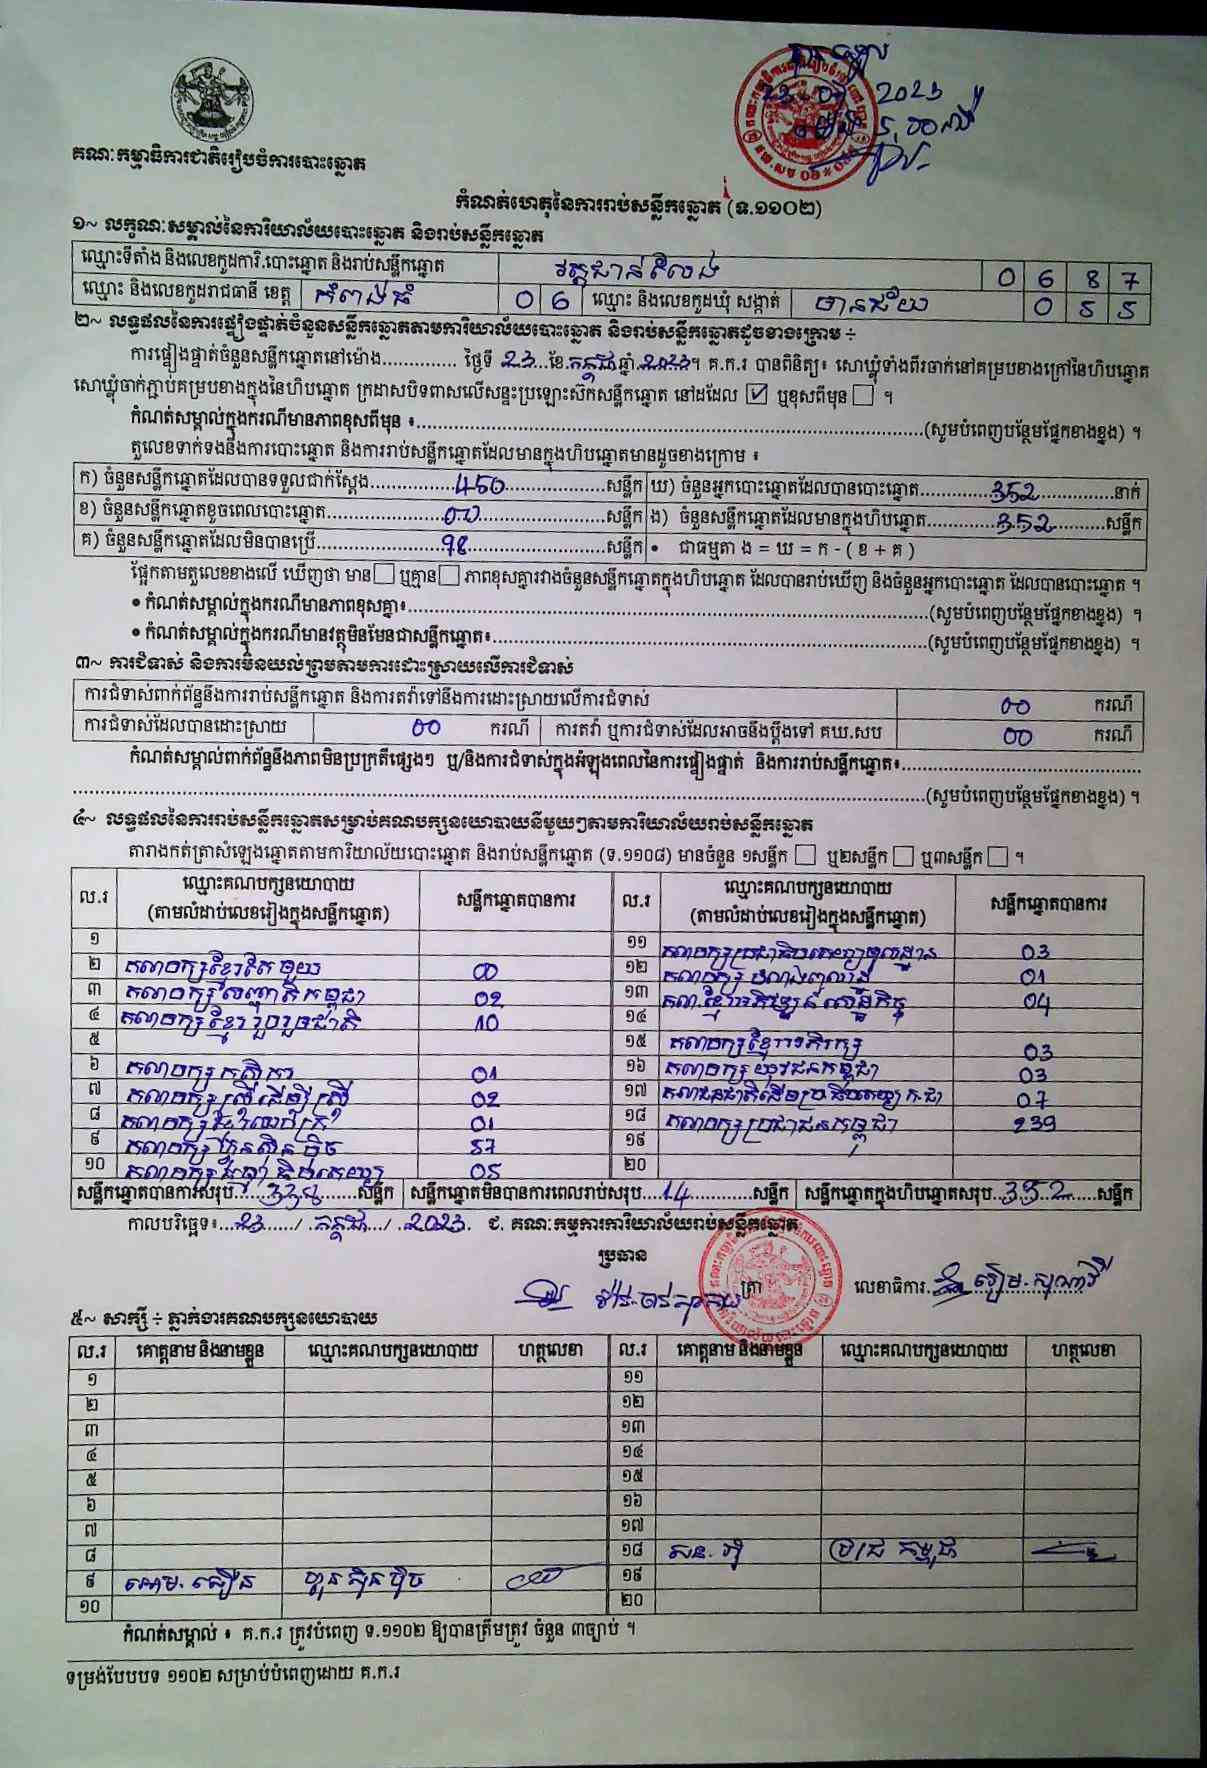 2023
គណៈកម្មាធិការជាតិរៀបចំការបោះឆ្នោត
កំណត់ហេតុនៃការរាប់សន្លឹកឆ្នោត (ទ.១១០២)
១~ លក្ខណៈសម្គាល់នៃការិយាល័យបោះឆ្នោត និងរាប់សន្លឹកឆ្នោត
ឈ្មោះទីតាំង និងលេខកូដការិ.បោះឆ្នោត និងរាប់សន្លឹកឆ្នោត 0 6 8 7
ឈ្មោះ និងលេខកូដរាជធានី ខេត្ត កំពង់ធំ 0 6 ឈ្មោះ និងលេខកូដឃុំ សង្កាត់ មានជ័យ 0 5 5
២~ លទ្ធផលនៃការផ្ទៀងផ្ទាត់ចំនួនសន្លឹកឆ្នោតតាមការិយាល័យបោះឆ្នោត និងរាប់សន្លឹកឆ្នោតដូចខាងក្រោម ÷
ការផ្ទៀងផ្ទាត់ចំនួនសន្លឹកឆ្នោតនៅម៉ោង.............. ថ្ងៃទី 23 ខែ កក្កដា ឆ្នាំ 2023 ។ គ.ក.រ បានពិនិត្យ៖ សោឃ្លុំទាំងពីរចាក់នៅគម្របខាងក្រៅនៃហិបឆ្នោត
សោឃ្លុំចាក់ភ្ជាប់គម្របខាងក្នុងនៃហិបឆ្នោត ក្រដាសបិទពាសលើសន្ទះប្រឡោះស៊កសន្លឹកឆ្នោត នៅដដែល ☑ ឬខុសពីមុន ☐ ។
កំណត់សម្គាល់ក្នុងករណីមានភាពខុសពីមុន ៖..............(សូមបំពេញបន្ថែមផ្នែកខាងខ្នង) ។
តួលេខទាក់ទងនឹងការបោះឆ្នោត និងការរាប់សន្លឹកឆ្នោតដែលមានក្នុងហិបឆ្នោតមានដូចខាងក្រោម ៖
ក) ចំនួនសន្លឹកឆ្នោតដែលបានទទួលជាក់ស្តែង 450 សន្លឹក ឃ) ចំនួនអ្នកបោះឆ្នោតដែលបានបោះឆ្នោត 352 នាក់
ខ) ចំនួនសន្លឹកឆ្នោតខូចពេលបោះឆ្នោត 00 សន្លឹក ង) ចំនួនសន្លឹកឆ្នោតដែលមានក្នុងហិបឆ្នោត 352 សន្លឹក
គ) ចំនួនសន្លឹកឆ្នោតដែលមិនបានប្រើ 98 សន្លឹក • ជាធម្មតា ង = ឃ = ក - ( ខ + គ )
ផ្អែកតាមតួលេខខាងលើ ឃើញថា មាន ☐ ឬគ្មាន ☐ ភាពខុសគ្នារវាងចំនួនសន្លឹកឆ្នោតក្នុងហិបឆ្នោត ដែលបានរាប់ឃើញ និងចំនួនអ្នកបោះឆ្នោត ដែលបានបោះឆ្នោត ។
• កំណត់សម្គាល់ក្នុងករណីមានភាពខុសគ្នា៖..............(សូមបំពេញបន្ថែមផ្នែកខាងខ្នង) ។
• កំណត់សម្គាល់ក្នុងករណីមានវត្ថុមិនមែនជាសន្លឹកឆ្នោត៖..............(សូមបំពេញបន្ថែមផ្នែកខាងខ្នង) ។
៣~ ការជំទាស់ និងការមិនយល់ព្រមតាមការដោះស្រាយលើការជំទាស់
ការជំទាស់ពាក់ព័ន្ធនឹងការរាប់សន្លឹកឆ្នោត និងការតវ៉ាទៅនឹងការដោះស្រាយលើការជំទាស់ 00 ករណី
ការជំទាស់ដែលបានដោះស្រាយ 00 ករណី ការតវ៉ា ឬការជំទាស់ដែលអាចនឹងប្តឹងទៅ គឃ.សប 00 ករណី
កំណត់សម្គាល់ពាក់ព័ន្ធនឹងភាពមិនប្រក្រតីផ្សេងៗ ឬ/និងការជំទាស់ក្នុងអំឡុងពេលនៃការផ្ទៀងផ្ទាត់ និងការរាប់សន្លឹកឆ្នោត៖..............
..............(សូមបំពេញបន្ថែមផ្នែកខាងខ្នង) ។
៤~ លទ្ធផលនៃការរាប់សន្លឹកឆ្នោតសម្រាប់គណបក្សនយោបាយនីមួយៗតាមការិយាល័យរាប់សន្លឹកឆ្នោត
តារាងកត់ត្រាសំឡេងឆ្នោតតាមការិយាល័យបោះឆ្នោត និងរាប់សន្លឹកឆ្នោត (ទ.១១០៨) មានចំនួន ១សន្លឹក ☐ ឬ២សន្លឹក ☐ ឬ៣សន្លឹក ☐ ។
ល.រ ឈ្មោះគណបក្សនយោបាយ (តាមលំដាប់លេខរៀងក្នុងសន្លឹកឆ្នោត) សន្លឹកឆ្នោតបានការ ល.រ ឈ្មោះគណបក្សនយោបាយ (តាមលំដាប់លេខរៀងក្នុងសន្លឹកឆ្នោត) សន្លឹកឆ្នោតបានការ
១ ១១ គណបក្សប្រជាធិបតេយ្យមូលដ្ឋាន 03
២ គណបក្សខ្មែរតែមួយ 00 ១២ គណបក្ស 01
៣ គណបក្ស កម្ពុជា 02 ១៣ គណ.ខ្មែរអភិវឌ្ឍន៍សេដ្ឋកិច្ច 04
៤ គណបក្សខ្មែររួបរួមជាតិ 10 ១៤
៥ ១៥ គណបក្សខ្មែរអភិរក្ស 03
៦ គណបក្សកសិករ 01 ១៦ គណបក្សយុវជនកម្ពុជា 03
៧ គណបក្សស្រ្តីដើម្បីស្រ្តី 02 ១៧ 07
៨ គណបក្ស 01 ១៨ គណបក្សប្រជាជនកម្ពុជា 239
៩ គណបក្សហ៊្វុនស៊ិនប៉ិច 57 ១៩
១០ គណបក្ស 05 ២០
សន្លឹកឆ្នោតបានការសរុប 338 សន្លឹក សន្លឹកឆ្នោតមិនបានការពេលរាប់សរុប 14 សន្លឹក សន្លឹកឆ្នោតក្នុងហិបឆ្នោតសរុប 352 សន្លឹក
កាលបរិច្ឆេទ៖ 23 / កក្កដា / 2023. ជ. គណៈកម្មការការិយាល័យរាប់សន្លឹកឆ្នោត
ប្រធាន
ត្រា លេខាធិការ
៥~ សាក្សី ÷ ភ្នាក់ងារគណបក្សនយោបាយ
ល.រ គោត្តនាម និងនាមខ្លួន ឈ្មោះគណបក្សនយោបាយ ហត្ថលេខា ល.រ គោត្តនាម និងនាមខ្លួន ឈ្មោះគណបក្សនយោបាយ ហត្ថលេខា
១ ១១
២ ១២
៣ ១៣
៤ ១៤
៥ ១៥
៦ ១៦
៧ ១៧
៨ ១៨ សន. អ៊ី ប្រជា កម្ពុជា
៩ ហ៊្វុនស៊ិនប៉ិច ១៩
១០ ២០
កំណត់សម្គាល់ ៖ គ.ក.រ ត្រូវបំពេញ ទ.១១០២ ឱ្យបានត្រឹមត្រូវ ចំនួន ៣ច្បាប់ ។
ទម្រង់បែបបទ ១១០២ សម្រាប់បំពេញដោយ គ.ក.រ